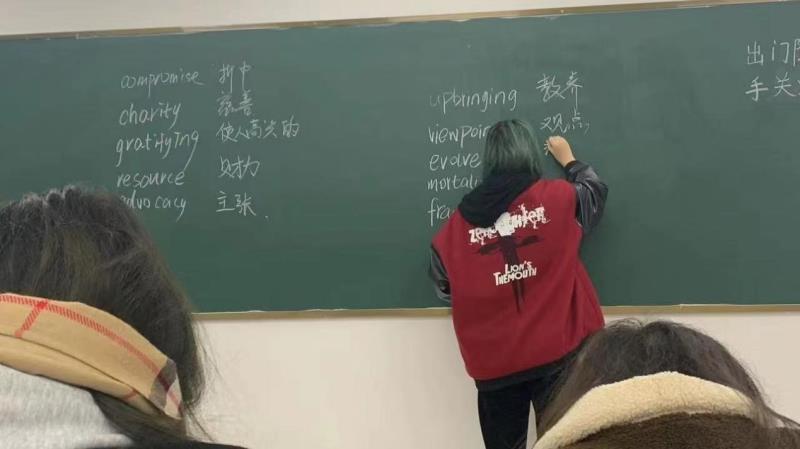 compromise 折中
charity 慈善
gratifying 使人高兴的
resource 财力
advocacy 主张.
upbringing 教养
viewpoin 观点,
evolve
mortali
fra
出门
手关
LION'S
THEMOUTH